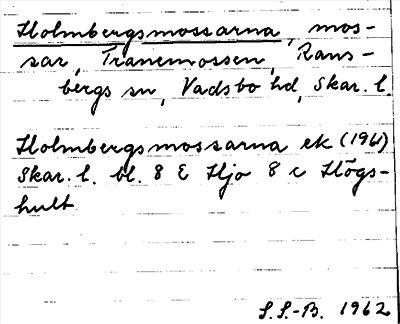 Holmbergsmossarna, mos-
sar, Tranemossen, Rans-
bergs sn, Vadsbo hd, Skar. l.
Holmbergsmossarna ek (1961)
Skar. l. bl. 8 E Hjo 8 c Högs-
hult
S.S.-B. 1962